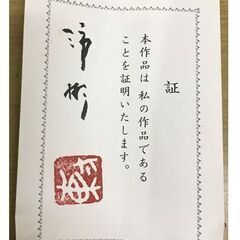 証
本作品は私の作品である
ことを証明いたします。